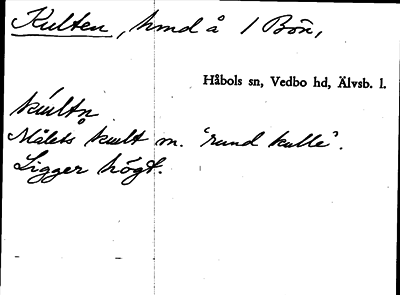 Kulten, hmd å 1 Bön,
Håbols sn, Vedbo hd, Älvsb. l.
kúltn̥
Målets kult m. "rund kulle".
Ligger högt.